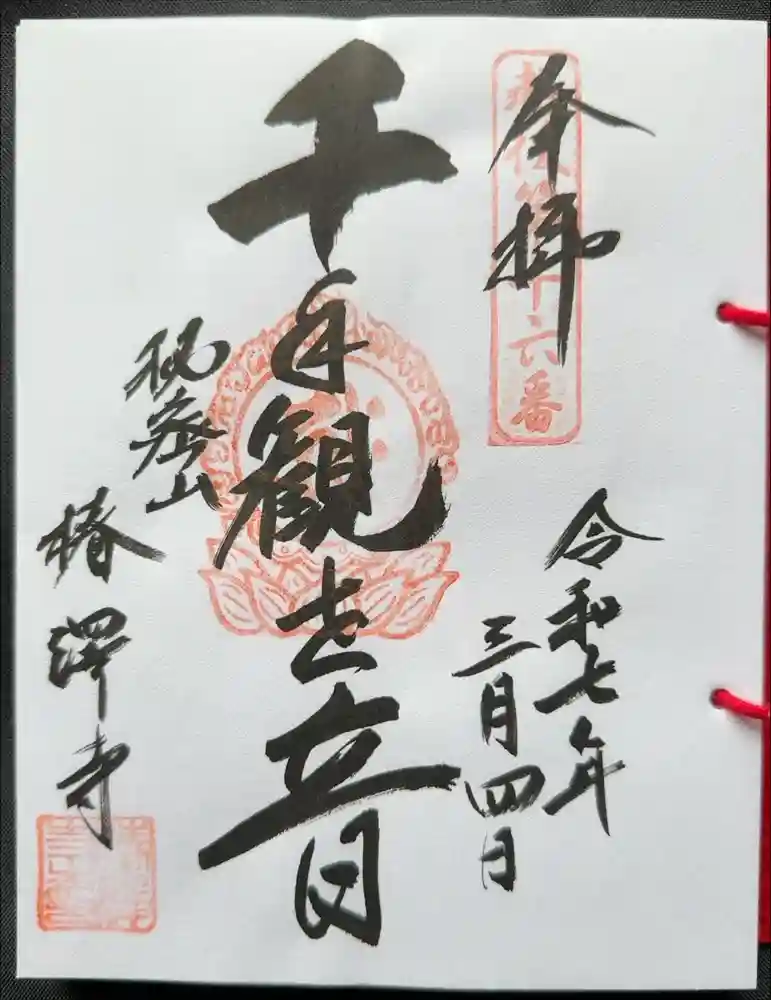 奉拝
令和七年
三月四日
千手観世音
秘密山
椿澤寺
十六番